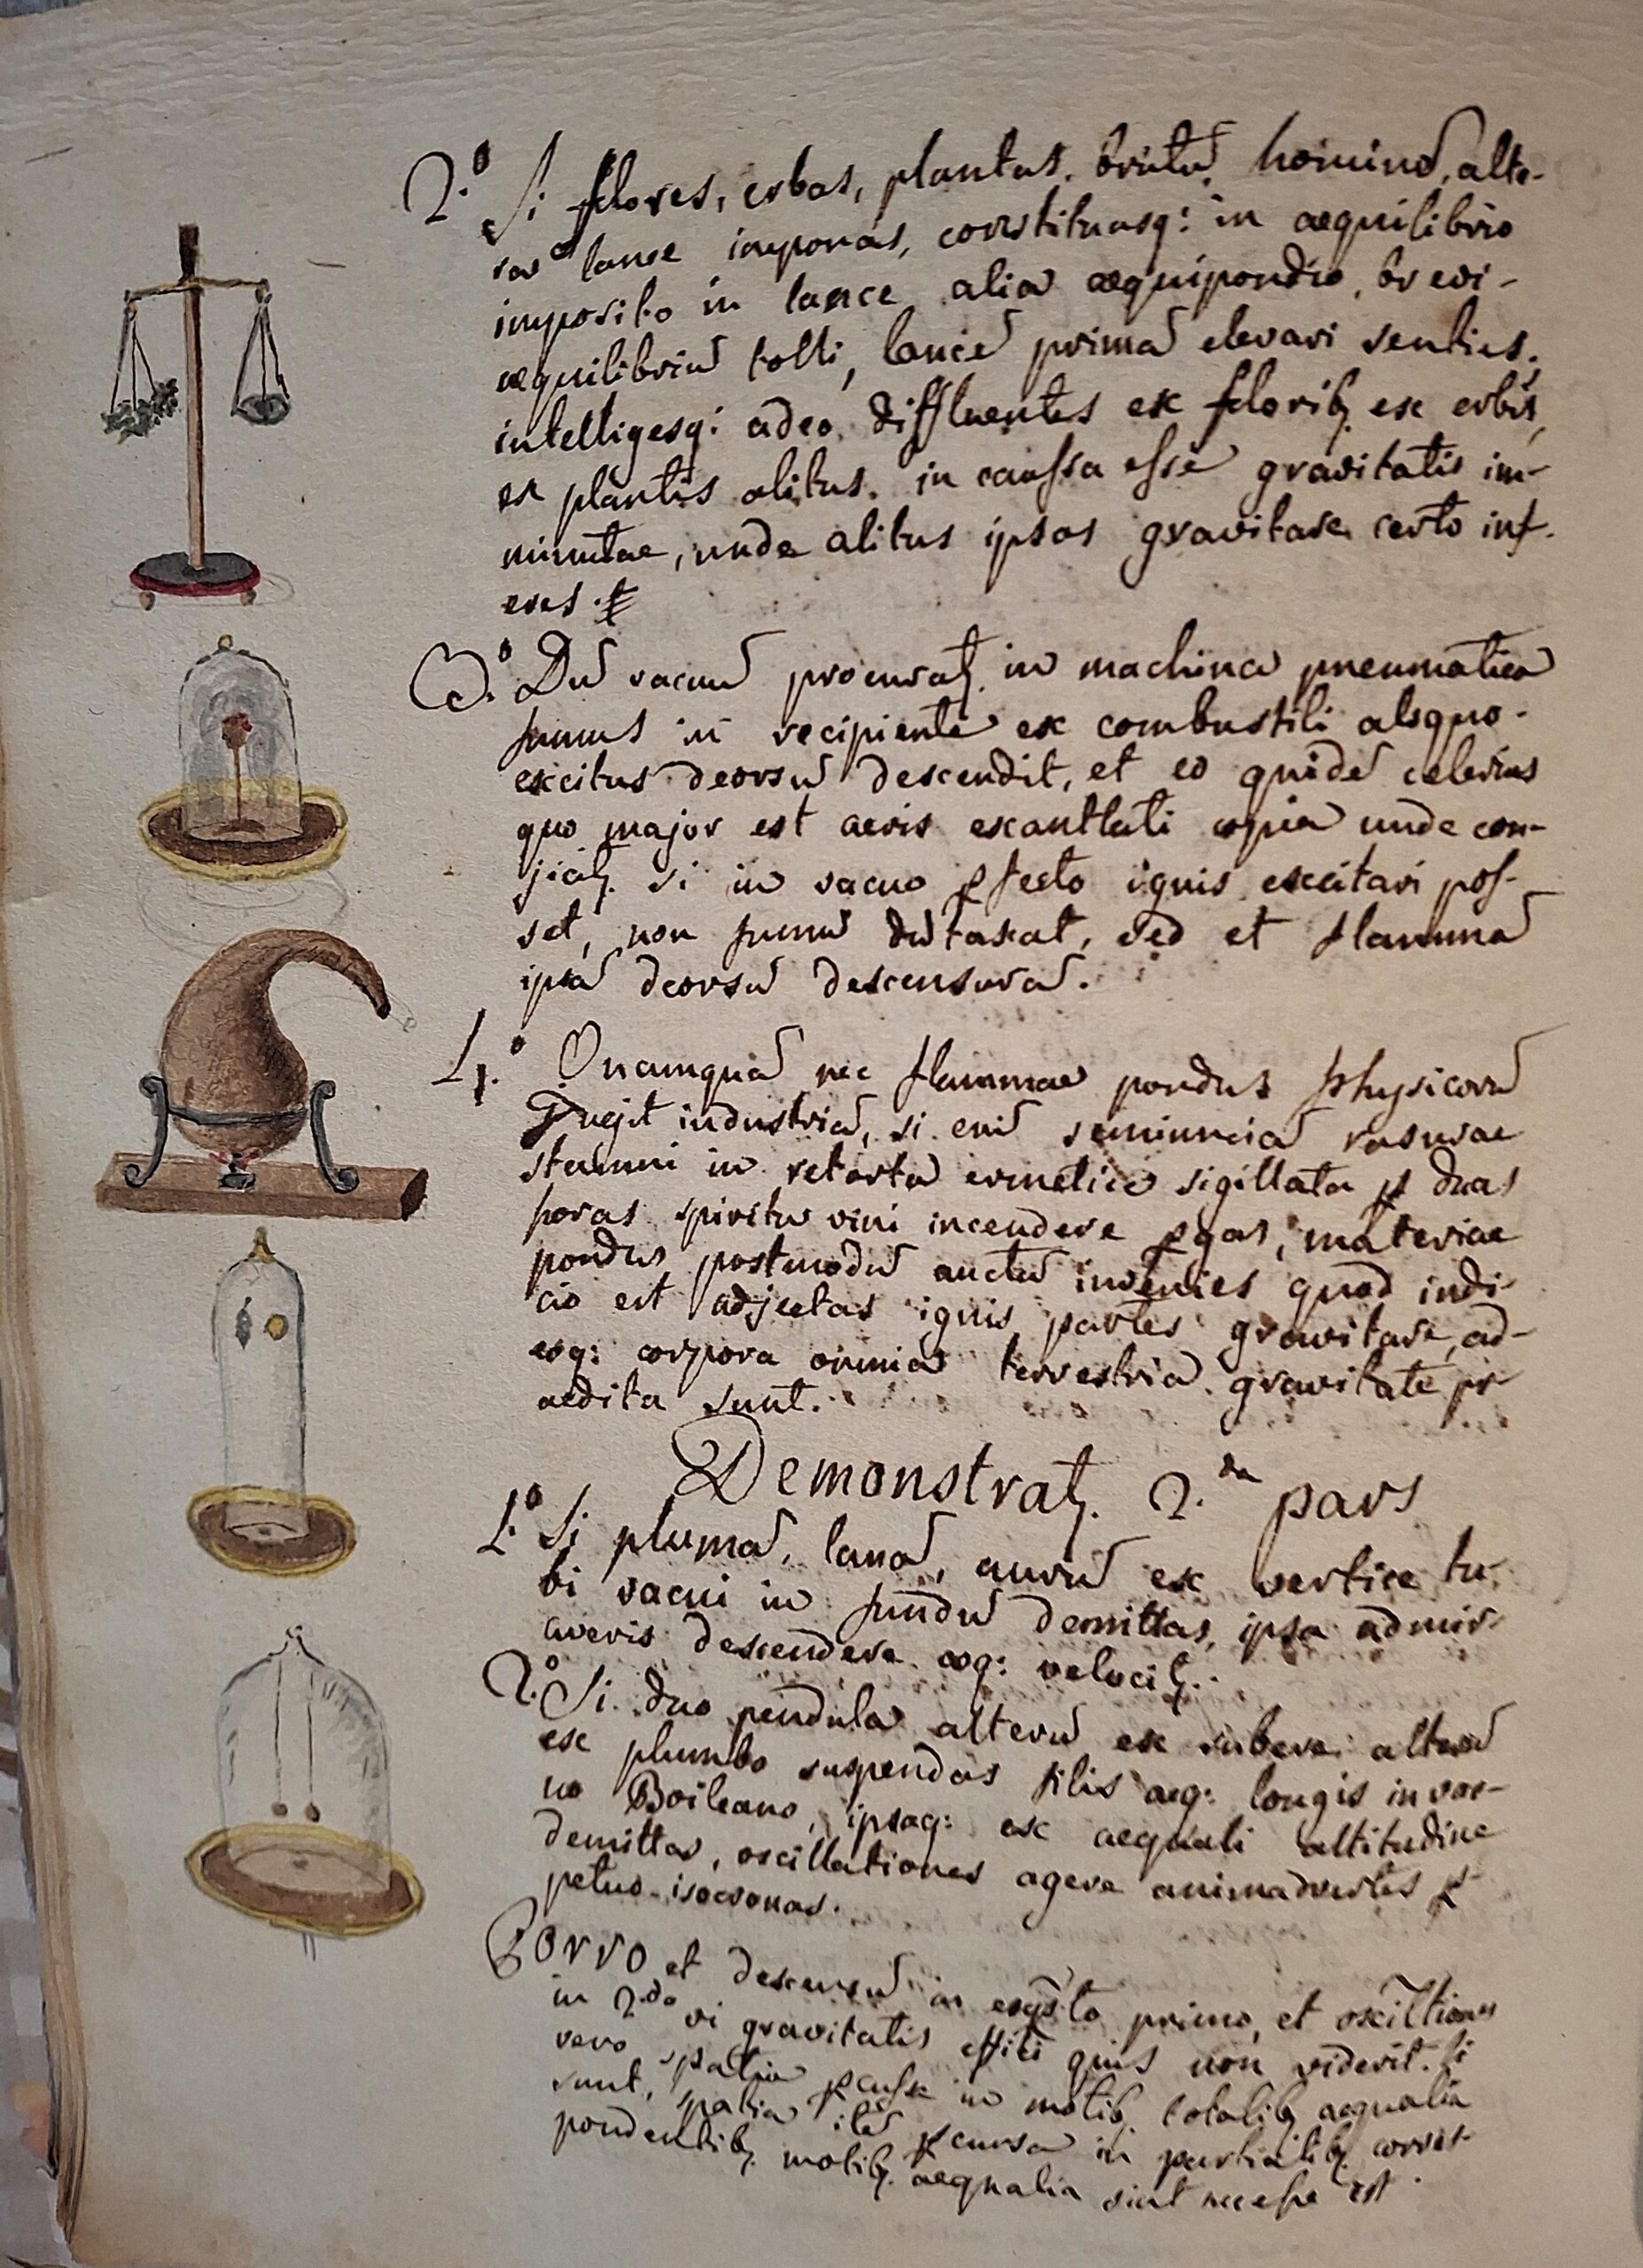 2.º Si flores, erbas, plantas, brutũ, hominẽ, alte-
ra lance imponas, constituasq: in aequilibrio
imposito in lance alia aequipondio, brevi
aequilibriũ tolli, lancẽ primã elevari senties,
intelligesq: adeo diffluentes ex floribꝫ ex erbis,
ex plantis alitus in caussa esse gravitatis im-
minutae, unde alitus ipsos gravitare certo inf-
eres.
3.º Dũ vacuũ procuratꝫ in machina pneumatica
fumus in recipiente ex combustili aliquo
excitus deorsũ descendit, et eo quidẽ celerius
quo major est aeris exantlati copia unde con-
jicitꝫ si in vacuo ꝑfecto ignis excitari pos-
set, non fumũ dũtaxat, sed et flammã
ipsã deorsũ descensurã.
4.º Quamquã nec flammae pondus Physicorũ
fugit industriã, si enĩ semiunciã rasurae
stamni in retorta ermetice sigillata ꝑ duas
horas spiritu vini incendere ꝑgas, materiae
pondus postmodũ auctũ invenies quod indi-
cio est adjectas ignis partes gravitare, ad-
eoq: corpora omnia terrestria gravitate pr-
aedita sunt.
Demonstratꝫ. 2.da pars
1.º Si plumã, lanã, aurũ ex vertice tu-
bi vacui in fundũ demittas, ipsa admir-
averis descendere aeq: velocitꝫ.
2.º Si duo pendula alterũ ex subere alterũ
ex plumbo suspendas filis aeq: longis in vac-
uo Boileano, ipsaq: ex aequali altitudine
demittas, oscillationes agere animadvertes ꝑ-
petuo isocronas.
Porro et descensũ in exp̃to primo, et oscilltiones
in 2.do vi gravitatis effici quis non viderit. Si
vero spatia ꝑcursa in motibꝫ totalibꝫ aequalia
sunt, spatia itẽ ꝑcursa in partialibꝫ corres-
pondentibꝫ motibꝫ aequalia sint necesse est.